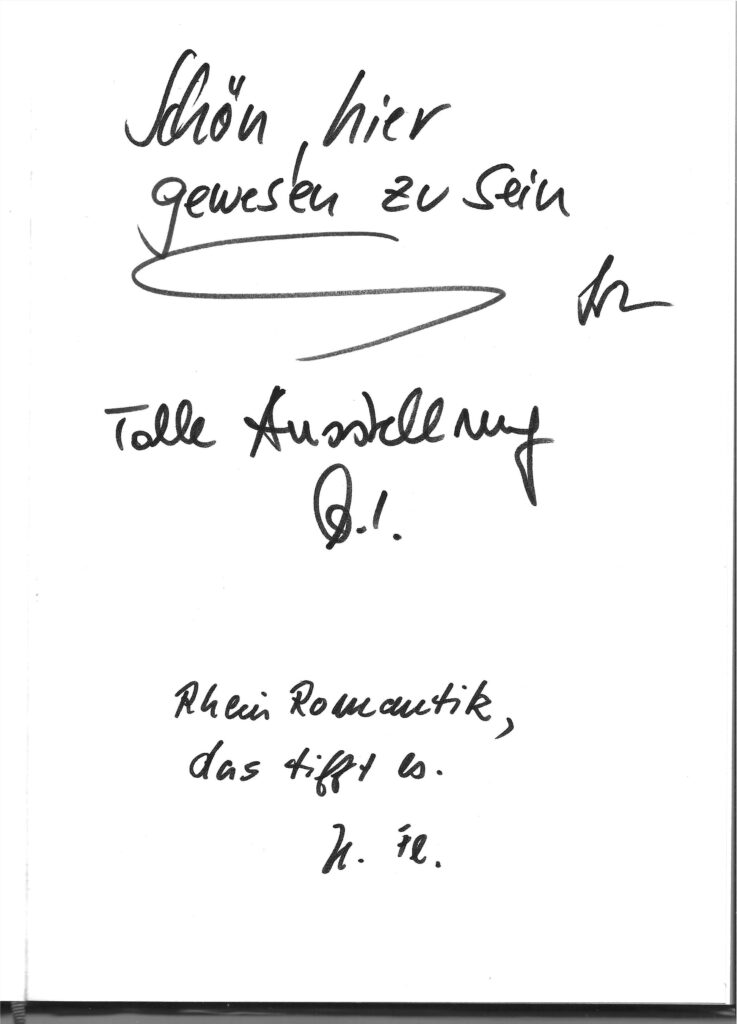 Schön, hier
gewesen zu sein
Tolle Ausstellung
Rhein Romantik,
das tifft es.
H. Fl.